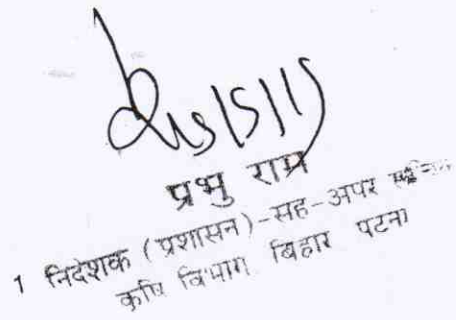 प्रभु राम
1 निदेशक (प्रशासन)-सह-अपर
कृषि विभाग बिहार पटना